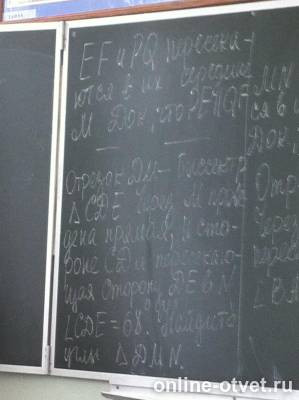 EF и PQ пересека-
ются в их середине
М Док, что PE∥QF
Отрезок DM – биссектр.
Δ CDE. Через М прове
дена прямая, ∥ сто-
роне CD и пересекаю-
щая сторону DE в N
∠CDE = 68°. Найдите
углы Δ DMN.
MN
ся в
Док,
Отр
Через
перес
online-otvet.ru